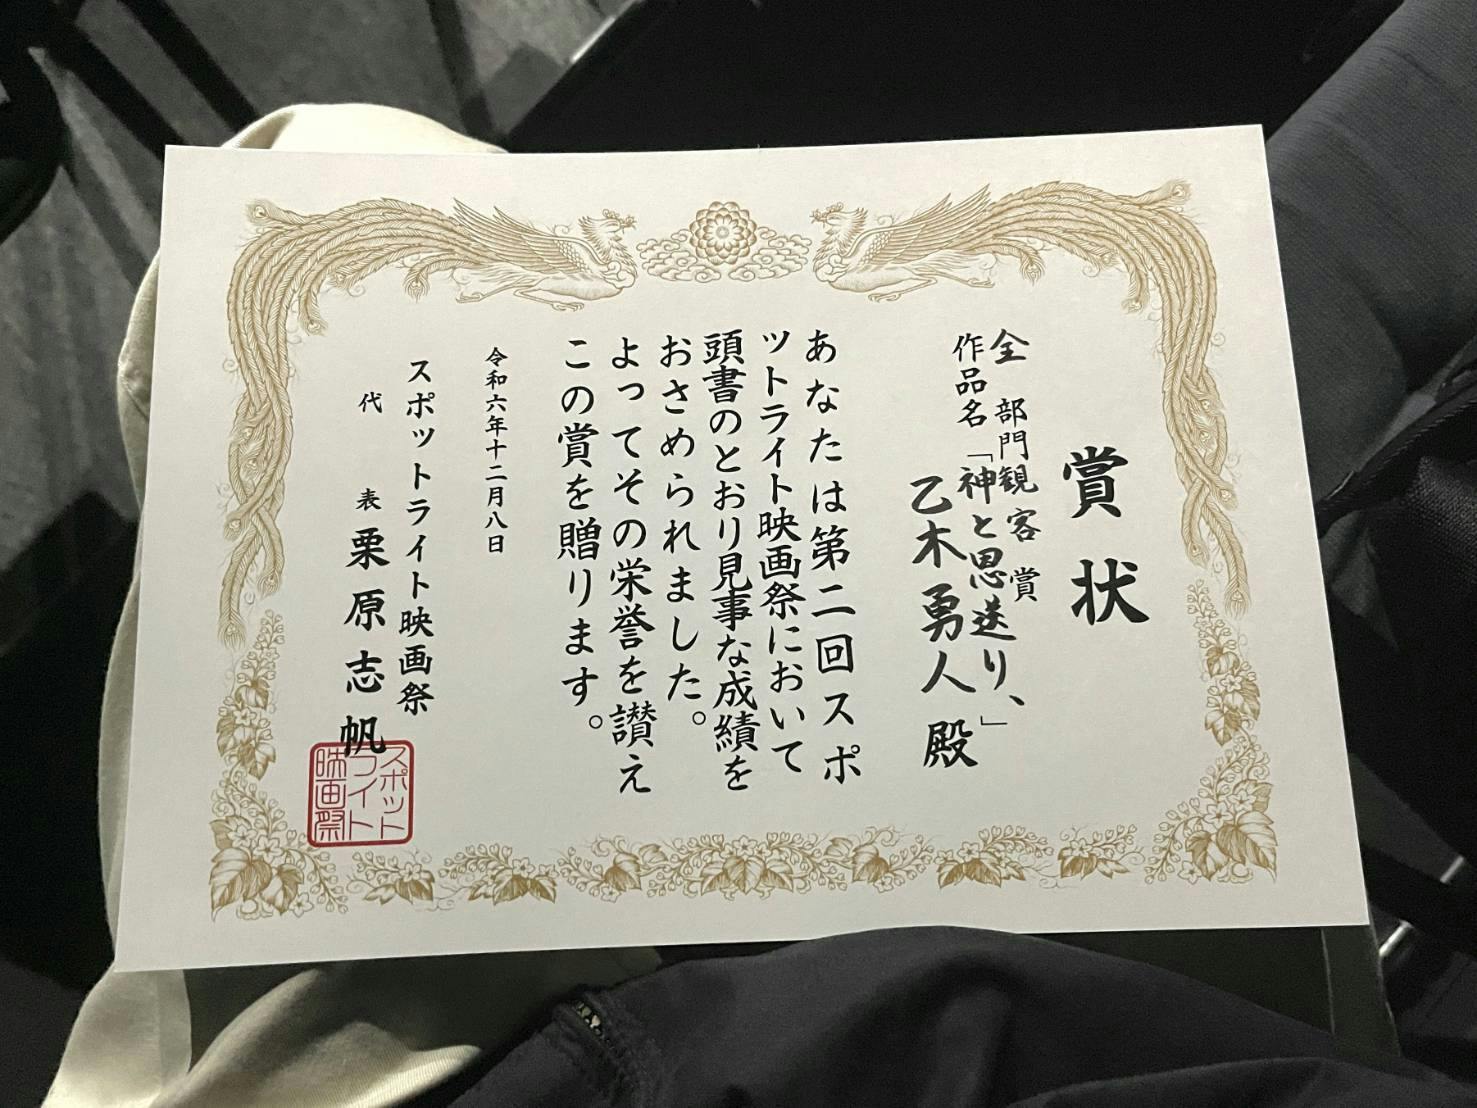 賞状
全部門観客賞
作品名「神と思送り、」
乙木勇人殿
あなたは第二回スポ
ットライト映画祭において
頭書のとおり見事な成績を
おさめられました。
よってその栄誉を讃え
この賞を贈ります。
令和六年十二月八日
スポットライト映画祭
代表 栗原志帆
スポット
ライト
映画祭